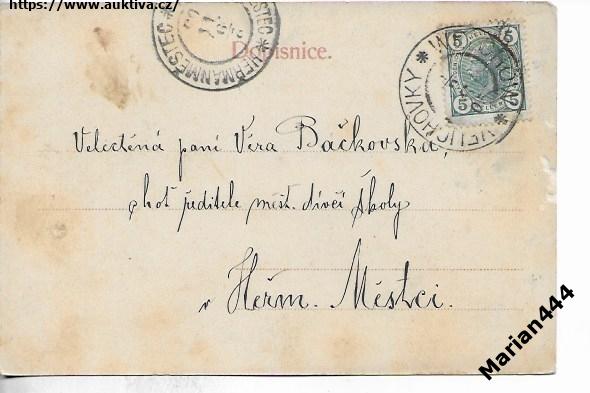 https://www.auktiva.cz/
Dopisnice.
HEŘMANMĚSTEC
5 5
5 5
VELICHOVKY * WELCHOW *
Velectěná paní Věra Bačkovská,
choť ředitele měst. dívčí školy
v Heřm. Městci.
Marian444